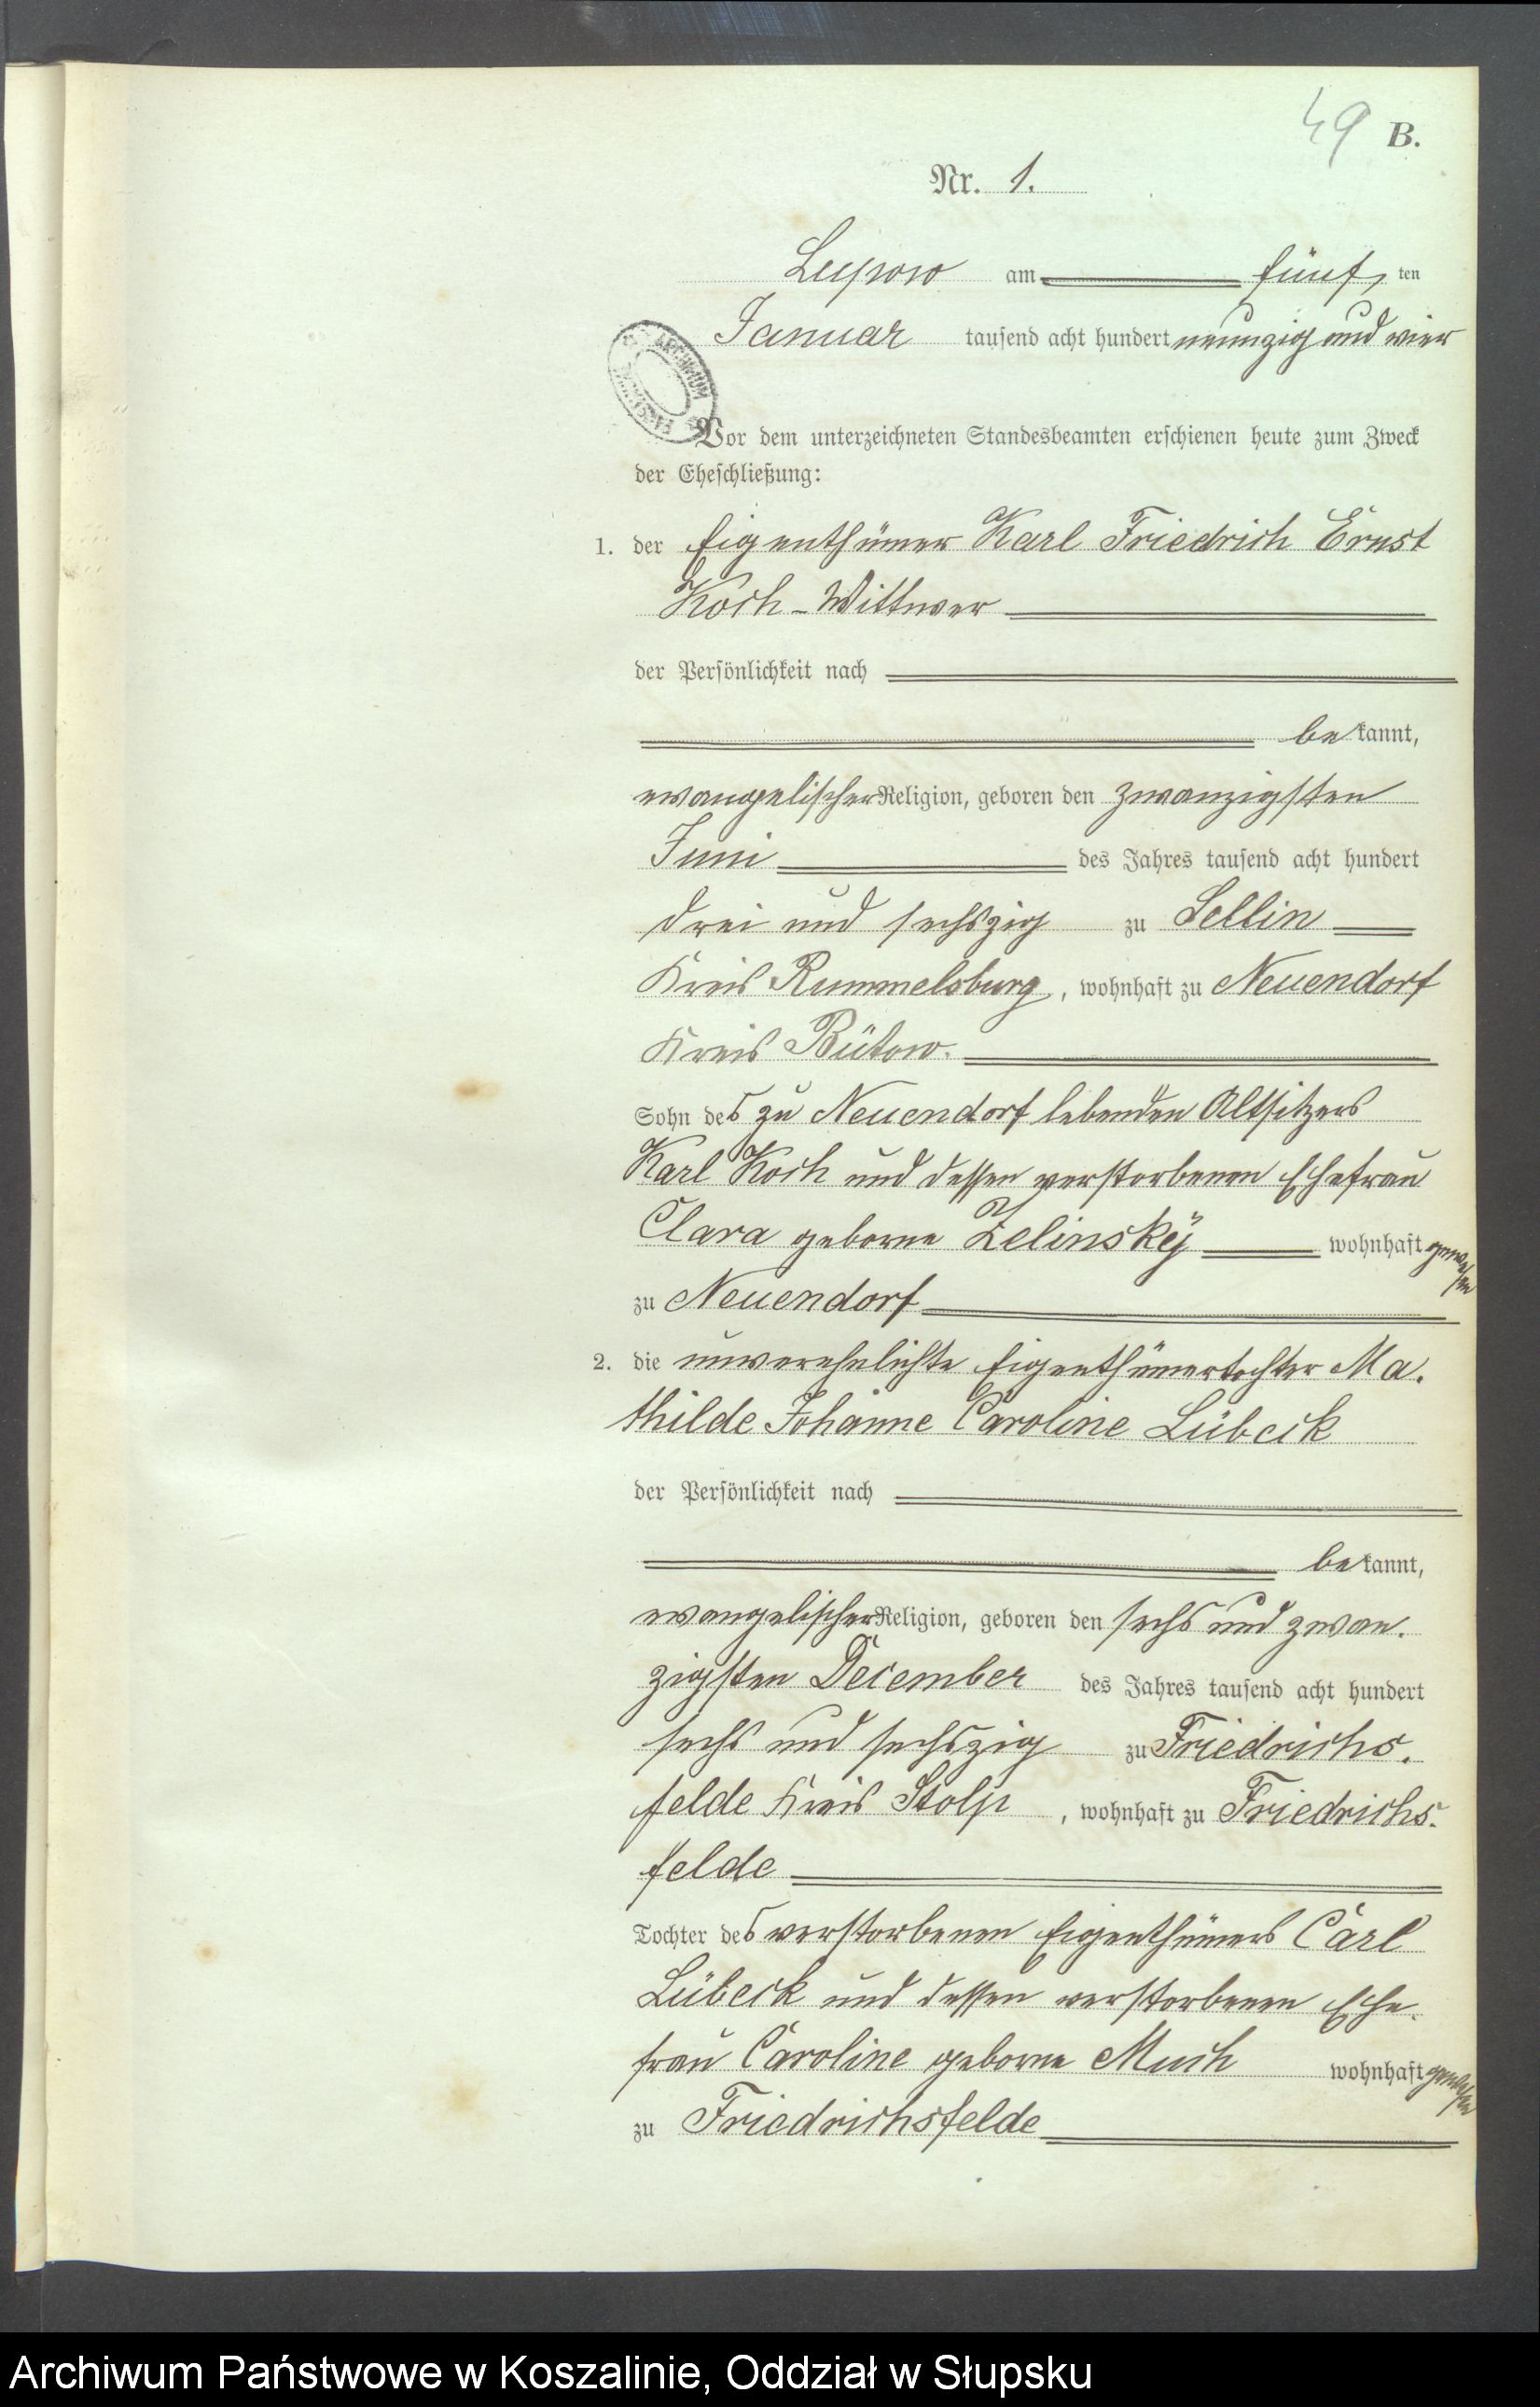 49 B.
Nr. 1.
Lupow am fünften
Januar tausend acht hundert neunzig und vier
Vor dem unterzeichneten Standesbeamten erschienen heute zum Zweck
der Eheschließung:
1. der Eigenthümer Karl Friedrich Ernst
Koch - Wittwer
der Persönlichkeit nach
bekannt,
evangelischer Religion, geboren den zwanzigsten
Juni des Jahres tausend acht hundert
drei und sechszig zu Sellin
Kreis Rummelsburg, wohnhaft zu Neuendorf
Kreis Bütow.
Sohn des zu Neuendorf lebenden Altsitzers
Karl Koch und dessen verstorbenen Ehefrau
Clara geborne Zelinský wohnhaft gewesen
zu Neuendorf
2. die unverehelichte Eigenthümertochter Ma-
thilde Johanne Caroline Lübeck
der Persönlichkeit nach
bekannt,
evangelischer Religion, geboren den sechs und zwan-
zigsten December des Jahres tausend acht hundert
sechs und sechszig zu Friedrichs-
felde Kreis Stolp, wohnhaft zu Friedrichs-
felde
Tochter des verstorbenen Eigenthümers Carl
Lübeck und dessen verstorbenen Ehe-
frau Caroline geborne Much wohnhaft gewesen
zu Friedrichsfelde
Archiwum Państwowe w Koszalinie, Oddział w Słupsku